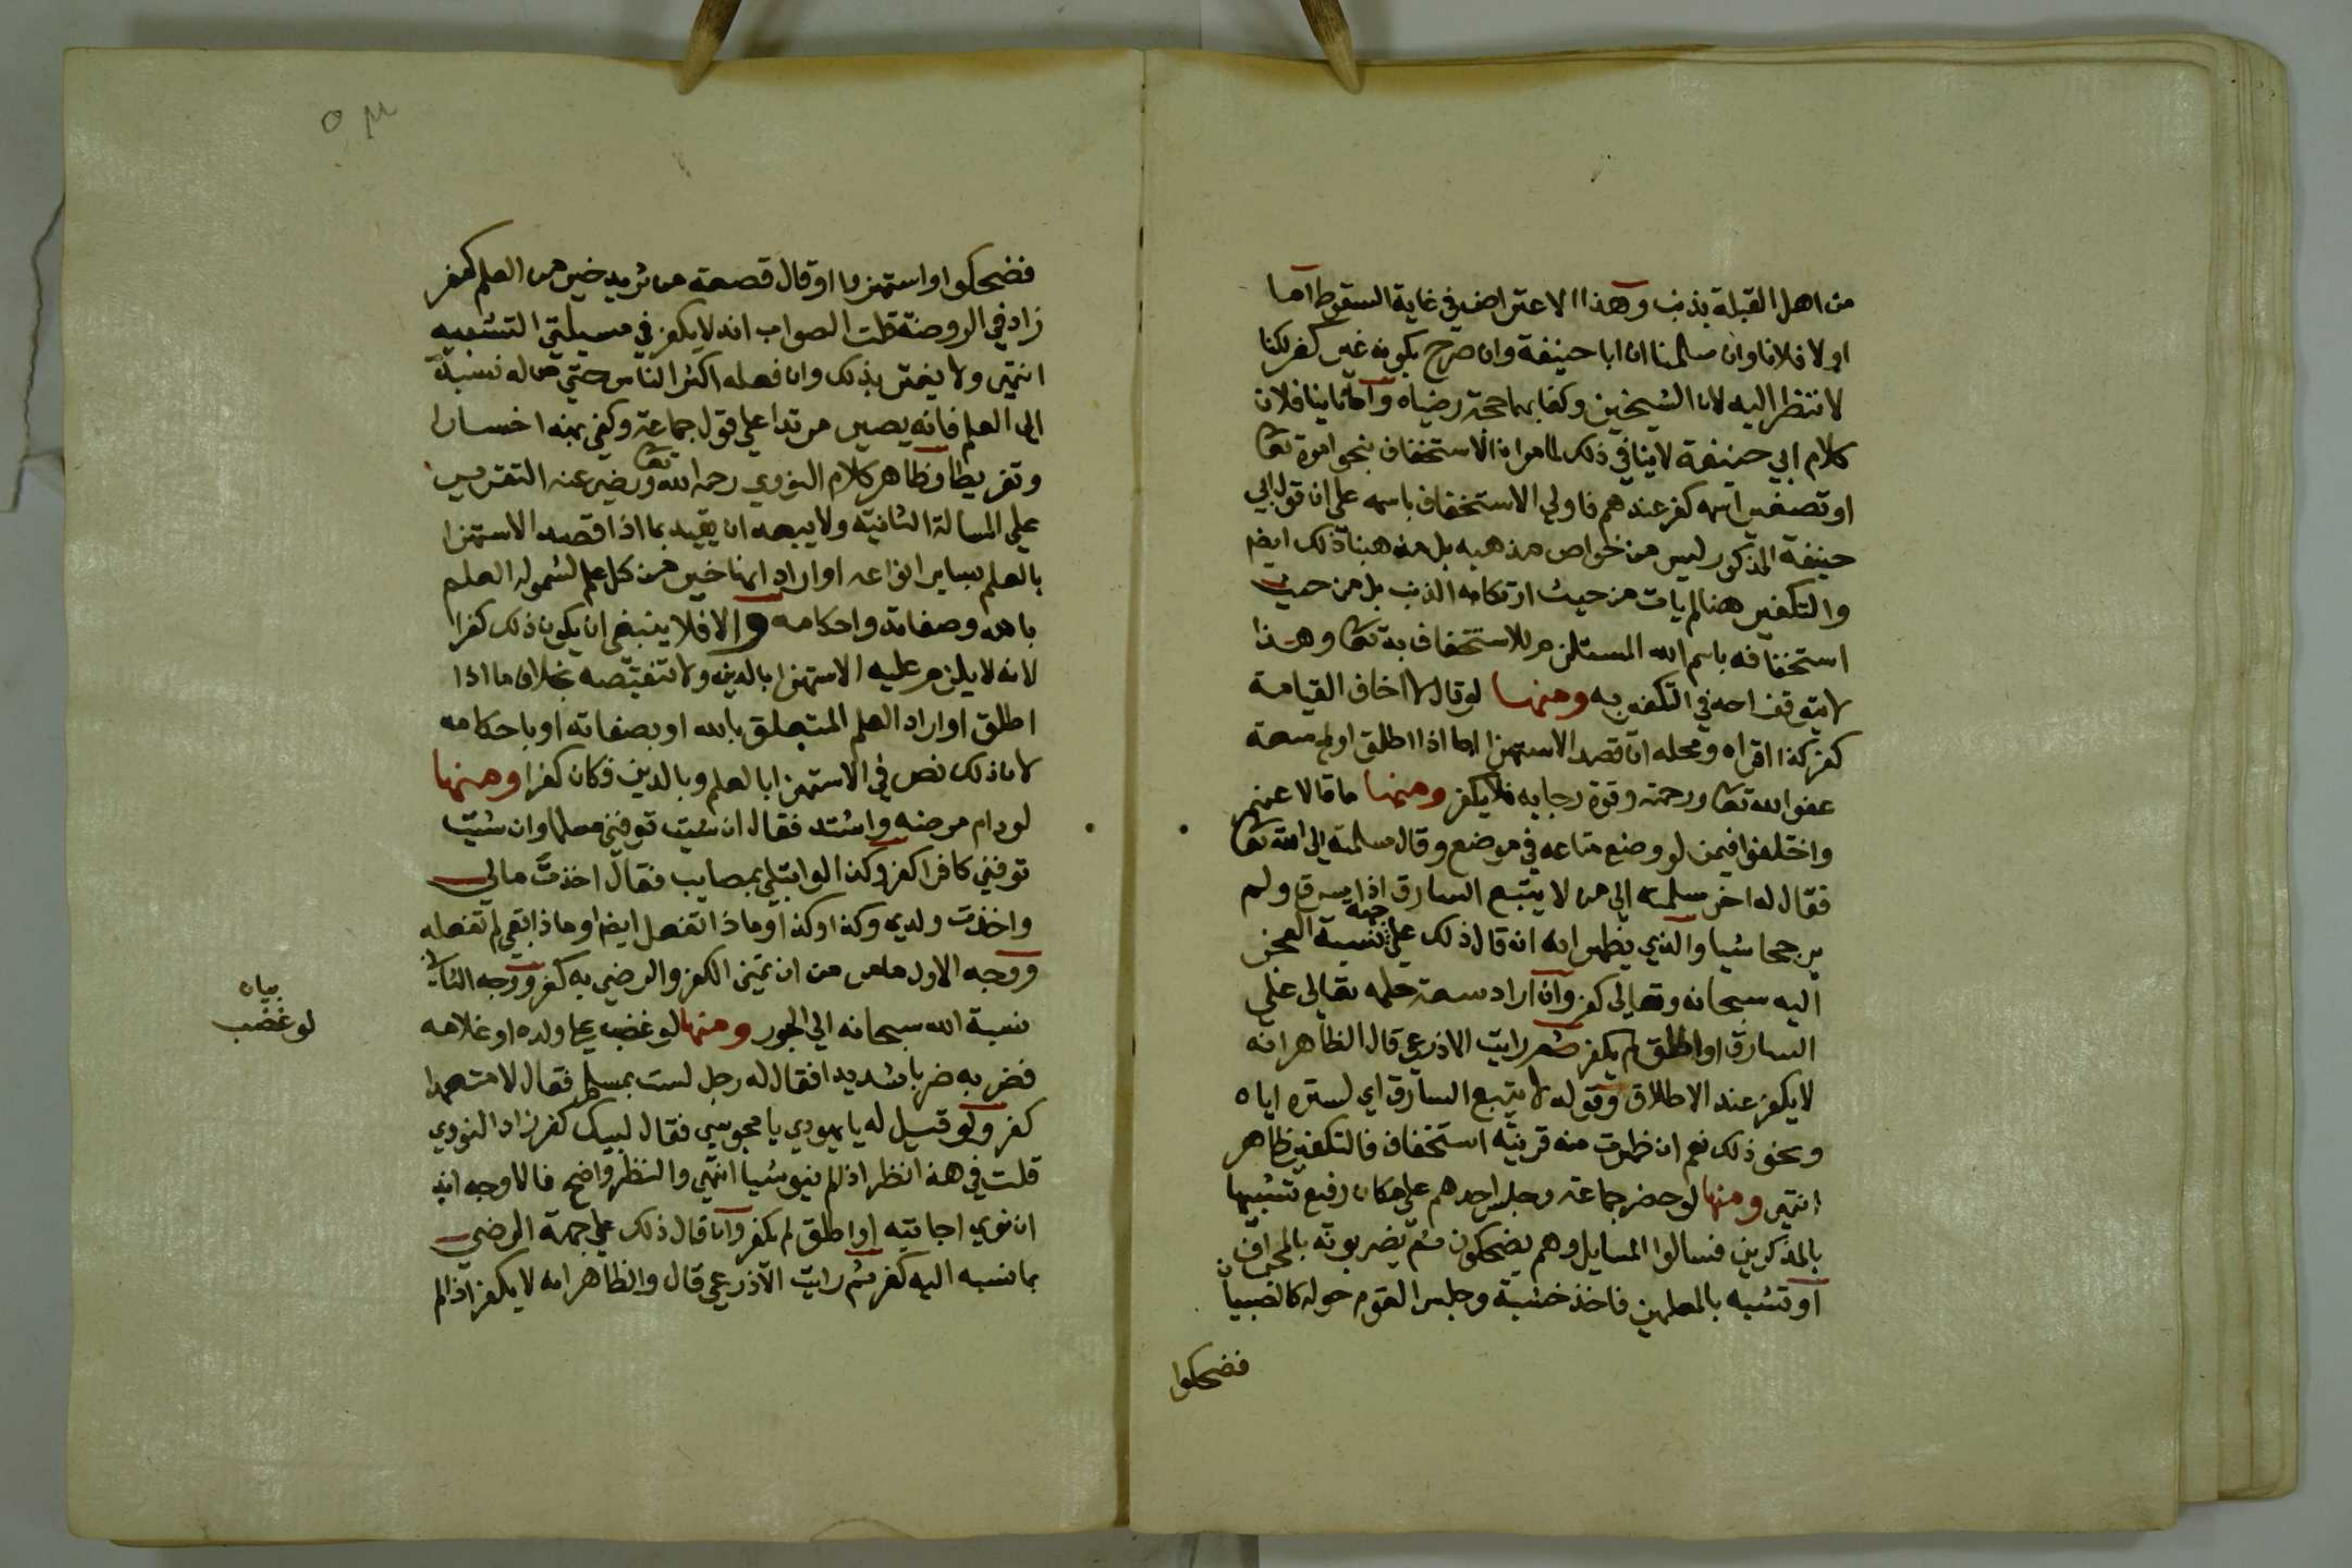 من اهل القبلة بذنب وهذا الاعتراض في غاية السقوط اما
اولا فلانا وان سلمنا ان ابا حنيفة وان صرح بكونه غير كفر لكنا
لا ننظر اليه لان الشيخين وكفا بهما حجة رضياه واما ثانيا فلان
كلام ابي حنيفة لا ينافي ذلك لما مر ان الاستخفاف بنحو امره تعا
او تصغير اسمه كفر عندهم فاولي الاستخفاف باسمه علي ان قول ابي
حنيفة المذكور ليس من خواص مذهبه بل مذهبنا ذلك ايض
والتكفير هنا لم يات من حيث ارتكابه الذنب بل من حيث
استخفافه باسم الله المستلزم للاستخفاف به تعا وهذا
لا يتوقف احد في التكفير به ومنها لو قال لا اخاف القيامة
كفر كذا اقراه ومحله ان قصد الاستهزا اما اذا اطلق او لمح سعة
عفو الله تعا ورحمته وقوة رجايه فلا يكفر ومنها ما قالا عنهم
واختلفوا فيمن لو وضع متاعه في موضع وقال سلمته الي الله تعا
فقال له اخر سلمته الي من لا يتبع السارق اذا سرق ولم
يرجحا شيا والذي يظهر انه ان قال ذلك علي جهة نسبة العجز
اليه سبحانه وتعالي كفر وان اراد سعة حلمه تعالي علي
السارق او اطلق لم يكفر ثم رايت الاذرعي قال الظاهر انه
لا يكفر عند الاطلاق وقوله لا يتبع السارق اي لستره اياه
ونحو ذلك نعم ان ظهرت منه قرينة استخفاف فالتكفير ظاهر
انتهي ومنها لو حضر جماعة وجلس احدهم علي مكان رفيع تشبيها
بالمذكرين فسالوا المسايل وهم يضحكون ثم يضربونه بالمحراق
او تشبه بالمعلمين فاخذ خشبة وجلس القوم حوله كالصبيان
فضحكوا
فضحكوا او استهزوا او قال قصعة من ثريد خير من العلم كفر
زاد في الروضة قلت الصواب انه لا يكفر في مسيلتي التشبيه
انتهي ولا يغتر بذلك وان فعله اكثر الناس حتي من له نسبة
الي العلم فانه يصير مرتدا علي قول جماعة وكفي بهذا خسارا
وتفريطا وظاهر كلام النووي رحمه الله تعا ورضي عنه التقرير
علي المسالة الثانية ولا يبعد ان يقيد بما اذا قصد الاستهزا
بالعلم بساير انواعه او اراد انها خير من كل علم لشموله العلم
بالله وصفاته واحكامه والا فلا ينبغي ان يكون ذلك كفرا
لانه لا يلزم عليه الاستهزا بالدين ولا تنقيصه بخلاف ما اذا
اطلق او اراد العلم المتعلق بالله او بصفاته او باحكامه
لان ذلك نص في الاستهزا بالعلم وبالدين فكان كفرا ومنها
لو دام مرضه واشتد فقال ان شيت توفني مسلما وان شيت
توفني كافرا كفر وكذا لو ابتلي بمصايب فقال اخذت مالي
واخذت ولدي وكذا وكذا وماذا تفعل ايض او ماذا بقي لم تفعله
ووجه الاول ما مر من ان تمني الكفر والرضي به كفر ووجه الثاني
نسبة الله سبحانه الي الجور ومنها لو غضب علي ولده او غلامه
فضربه ضربا شديدا فقال له رجل لست بمسلم فقال لا متعمدا
كفر ولو قيل له يا يهودي يا مجوسي فقال لبيك كفر زاد النووي
قلت في هذا نظر اذا لم ينو شيا انتهي والنظر واضح فالاوجه انه
ان نوي اجابته او اطلق لم يكفر وان قال ذلك علي جهة الرضي
بما نسبه اليه كفر ثم رايت الاذرعي قال والظاهر انه لا يكفر اذا لم
بيان
لو غضب